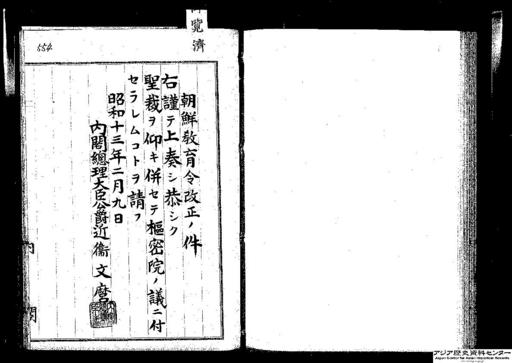 内覽濟
554
朝鮮敎育令改正ノ件
右謹テ上奏シ恭シク
聖裁ヲ仰キ併セテ樞密院ノ議ニ付
セラレムコトヲ請フ
昭和十三年二月九日
內閣總理大臣公爵近衞文麿
內閣
アジア歴史資料センター
Japan Center for Asian Historical Records